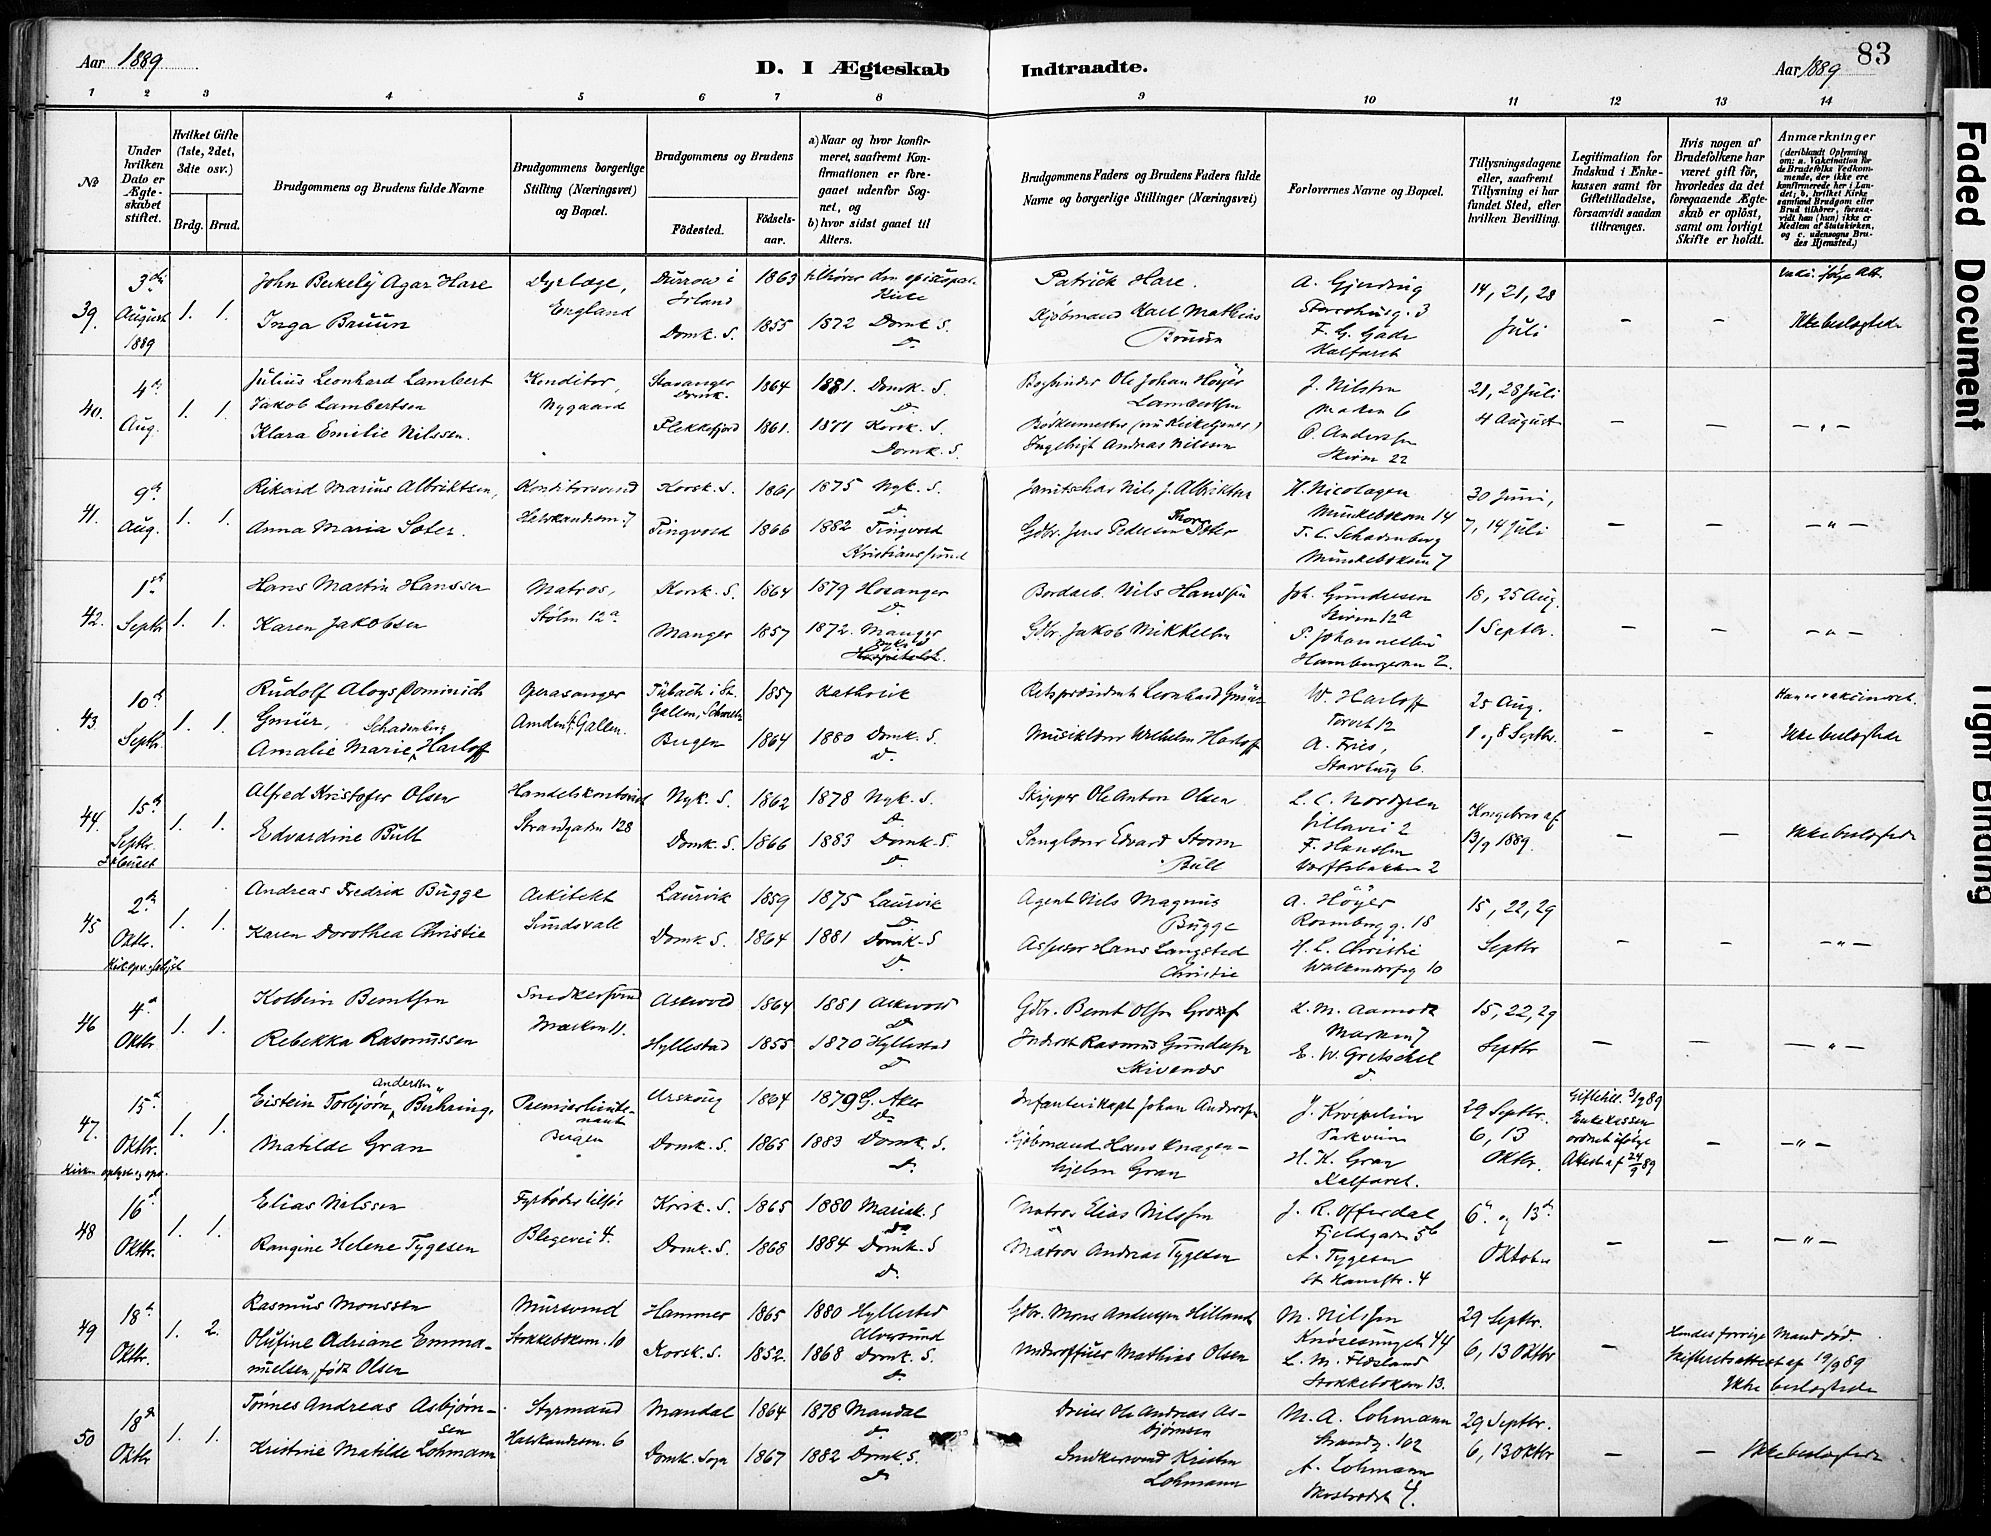 Aar 1889
D. I Ægteskab Indtraadte.
Aar 1889
83
1 2 3 4 5 6 7 8 9 10 11 12 13 14
№
Under hvilken Dato er Ægteskabet stiftet.
Hvilket Gifte (1ste, 2det, 3die osv.)
Brdg. Brud.
Brudgommens og Brudens fulde Navne
Brudgommens borgerlige Stilling (Næringsvei) og Bopæl.
Brudgommens og Brudens
Fødested.
Fødselsaar.
a) Naar og hvor konfirmeret, saafremt Konfirmationen er foregaaet udenfor Sognet, og
b) hvor sidst gaaet til Alters.
Brudgommens Faders og Brudens Faders fulde Navne og borgerlige Stillinger (Næringsvei)
Forlovernes Navne og Bopæl.
Tillysningsdagene eller, saafremt Tillysning ei har fundet Sted, efter hvilken Bevilling.
Legitimation for Indskud i Enkekassen samt for Giftetilladelse, forsaavidt saadan tiltrænges.
Hvis nogen af Brudefolkene har været gift før, hvorledes da det foregaaende Ægteskab er opløst, samt om lovligt Skifte er holdt.
Anmærkninger (deriblandt Oplysning om: a. Vakcination for de Brudefolks Vedkommende, der ikke ere konfirmerede her i Landet; b. hvilket Kirkesamfund Brudgom eller Brud tilhører, forsaavidt han (hun) ikke er Medlem af Statskirken, og c. udensogns Brudes Hjemsted.)
39. 3die August 1889 1. 1.
John Berkely Agar Hare
Inga Bruun
Dyrlæge, England
Durrow i Irland 1863 tilhører den episcopal. Kirke
Domk. S. 1855 1872 Domk. S. D.
Patrick Hare.
Kjøbmand Karl Mathias Bruun
A. Gjerding
F. G. Gade
Kalfaret
14, 21, 28 Juli
— —
Ikke beslægtede
40. 4de Aug. 1. 1.
Julius Leonhard Lambert
Jakob Lambertsen
Klara Emilie Nilssen.
Konditor, Nygaard
Stavanger Domk. 1864 1881. Domk. S. D.
Flekkefjord 1861. 1877 Korsk. S. Domk. S.
Bogbinder Ole Johan Høyer Lambertsen
Bødkermester (nu Kirketjener) Ingebrigt Andreas Nilssen
J. Nilsen
Marken 6
O. Anderssen
Skiven 22
21, 28 Juli
4 August
— — — „ —
41. 9de Aug. 1. 1.
Rikard Marius Albriktsen,
Anna Maria Soter.
Konditorsvend
Korsk. S. 1861 1875 Nyk. S. D.
Tingvold 1866 1882 Tingvold
Kristianssund
Janitschar Nils J. Albriktsen
Gdbr. Jens Pedersen Soter
H. Nicolaysen
Munkebotten 14
F. C. Schadenberg
Munkebotten 7
30 Juni,
7, 14 Juli
— — — „ —
42. 1ste Septbr 1. 1.
Hans Martin Hanssen
Karen Jakobsen
Matros, Stølen 12a
Korsk. S. 1864 1879 Hosanger D.
Manger 1857 1872. Manger
Bordarb. Nils Hanssen
Gdbr. Jakob Mikkelsen
Joh. Gundersen
Skiven 12a
P. Johannessen
Hamburgern 2.
18, 25 Aug.
1 Septbr.
— — — „ —
43 10de Septbr. 1. 1.
Rudolf Aloys Dominich
Gmür,
Schadenberg
Amalie Marie Harloff
Operasanger
Amden St. Gallen.
Tübach i St. Gallen, Schweiz 1857 katholik
Bergen 1864 1880 Domk. S. D.
Retspræsident Leonhard Gmür
Musiklærer Wilhelm Harloff
W. Harloff
Torvet 12
A. Fries,
25 Aug.
1 og 8 Septbr.
— —
Han er vakcineret.
Ikke beslægtede
44. 15de Septbr. 1. 1.
Alfred Kristofer Olsen
Edvardine Bull
Handelskontorist
Strandgaden 128
Nyk. S. 1862 1878 Nyk. S. D.
Domk. S. 1866 1883 Domk. S. D.
Skipper Ole Anton Olsen
Sanglærer Edvard Storm Bull
L. C. Nordgren
Villavei 2
F. Hanssen
Verftsbakken 2
Kongebrev af
13/9 1889.
— —
Ikke beslægtede
45 2den Oktbr. 1. 1.
Andreas Fredrik Bugge
Karen Dorothea Christie
Arkitekt
Sundsvall
Laurvik 1859 1875 Laurvik D.
Domk. S. 1864 1881 Domk. S D.
Agent Nils Magnus Bugge
Assessor Hans Langsted Christie
A. Höyer
Rosenberg g. 18
H. L. Christie
Walkendorfsg 10
15, 22, 29
Septbr
— — — „ —
46 4de Oktbr 1. 1.
Kolbein Berntsen
Rebekka Rasmussen
Snedkersvend
Marken 11.
Askvold 1864 1881 Askvold D
Hyllestad 1855 1870 Hyllestad D
Gdbr. Bernt Olsen
Inderst Rasmus Gundersen
L. M. Aamodt
Marken 7
E. W. Gretschel
D.
15, 22, 29
Septbr
— — — „ —
47. 15de Oktbr. 1. 1.
Anderssen
Eistein Torbjørn Buhring,
Matilde Gran
Premierlieutenant
Bergen
Urskoug 1864 1879 G. Aker D
Domk. S. 1865 1883 Domk. S. D.
Infanterikapt. Johan Anderssen
Kjøbmand Hans Knagenhjelm Gran
Parkveien
H. K. Gran
Kalfaret.
29 Septbr.
6, 13
Oktbr.
Giftetill. 3/9 89
Enkekassen
ordnet ifølge
Attest af 24/9 89
— — „ —
48 16de Oktbr. 1. 1.
Elias Nilssen
Rangine Helene Tygesen
Blegevei 4.
Korsk. S. 1865 1880 Mariek. S D
Domk. S. 1868 1884 Domk. S D.
Matros Elias Nilssen
Matros Andreas Tygesen
J. R. Offerdal
Fjeldgaden 5b
A. Tygesen
St. Hansstr. 4
6te og 13de
Oktober
— — — „ —
49 18de Oktbr. 1. 2.
Rasmus Monssen
Olufine Adriane Emmanuelsen, født Olsen
Mursvend
Stokkebokem. 10
Hammer 1865 1880 Hyllestad
Alversund
Korsk. S. 1852. 1868 Domk. S. D.
Gdbr. Mons Andersen Hilland
Underofficer Mathias Olsen
M. Nilssen
Knøsesmuget 44
L. M. Flæsland
Stokkebokem 13.
29 Septbr.
6, 13 Oktbr
—
Hendes forrige Mand død.
Skifteretsattest af 19/9 89
Ikke beslægtede
50 18de Oktbr 1. 1.
Tønnes Andreas Asbjørnsen
Kristine Matilde Lohmann
Styrmand
Mandal 1864 1878 Mandal D.
Domk. Sogn 1867 1882 Domk. S. D
Ole Andreas Asbjørnsen
Snedkersvend Kristen Lohmann
M. A. Lohmann
Strandg. 102
A. Lohmann
29 Septbr.
6, 13 Oktbr
— —
Ikke beslægtede
Faded Document
Tight Binding